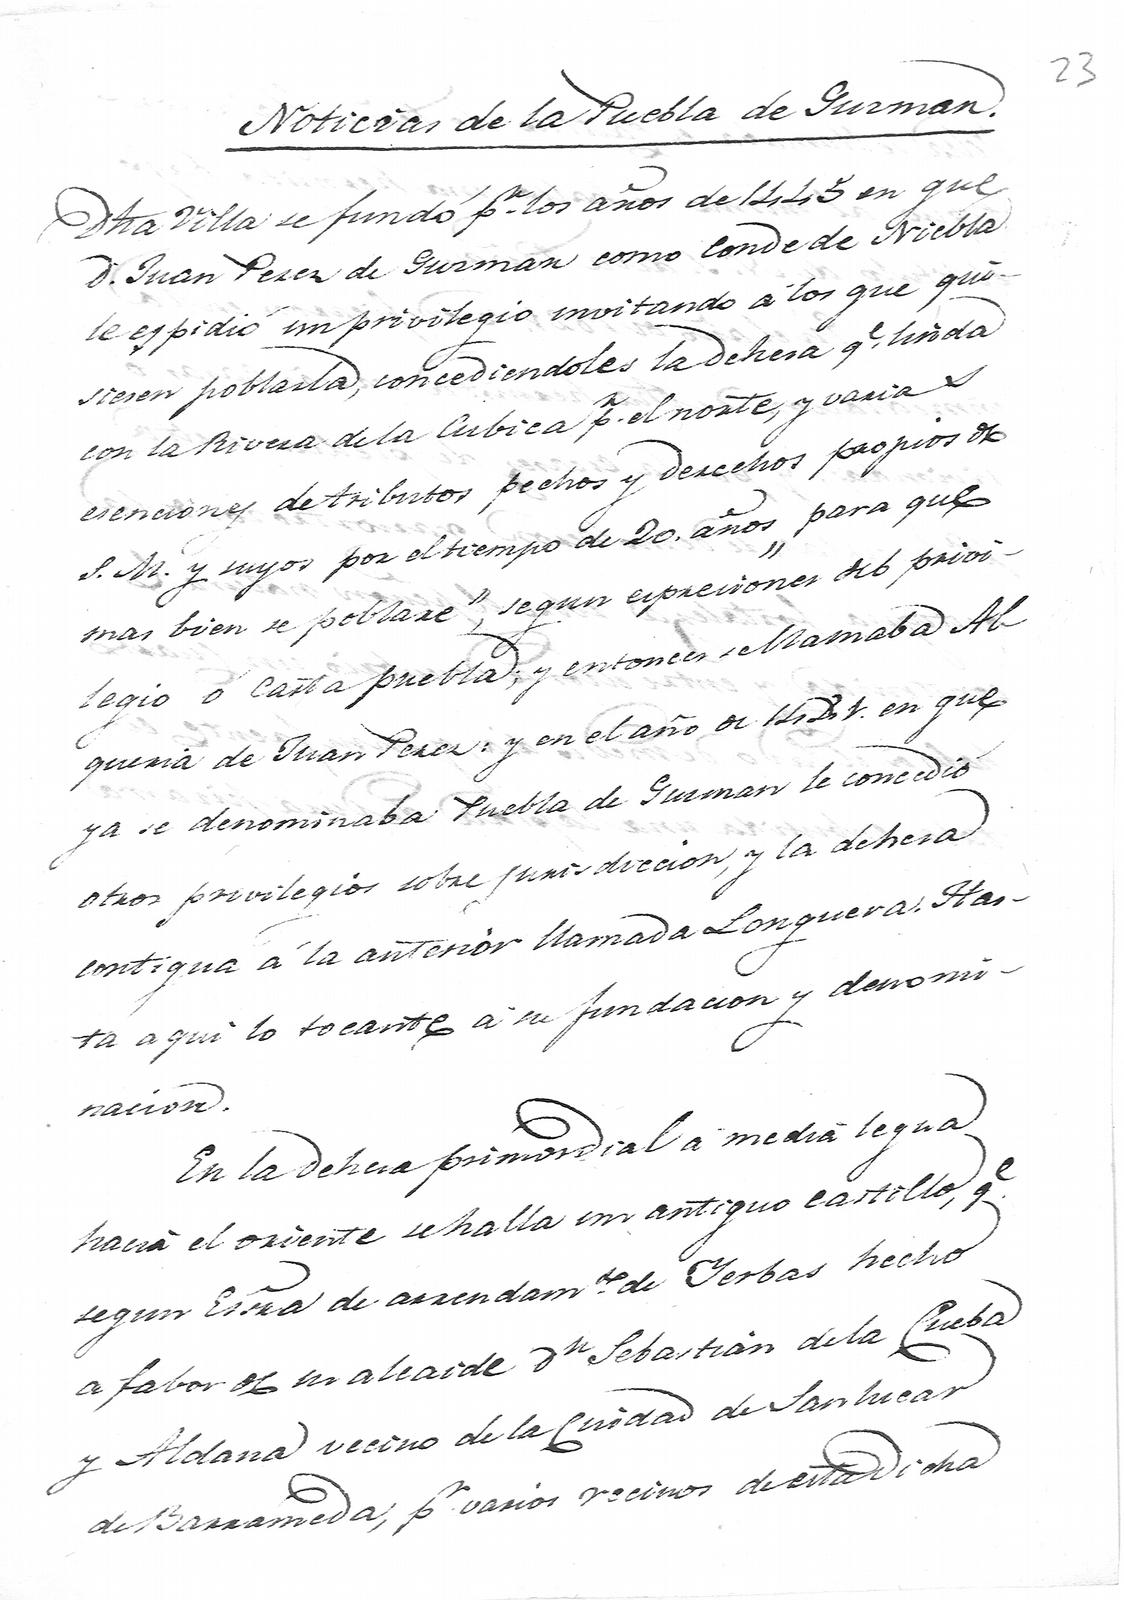 23
Noticias de la Puebla de Guzman.
Dha Villa se fundó pr. los años de 1445 en que
D. Juan Perez de Guzman como Conde de Niebla
le espidió un privilegio invitando á los que qui-
siesen poblarla, concediendoles la dehesa qe. linda
con la Rivera de la Cubica pr. el norte, y varias
esenciones de tributos pechos y derechos propios de
S. M. y suyos por el tiempo de 20. años,, para que
mas bien se poblare", segun espresiones del privi-
legio ó Carta puebla; y entonces se llamaba Al
queria de Juan Perez: y en el año de en que
ya se denominaba Puebla de Guzman le concedió
otros privilegios sobre jurisdiccion, y la dehesa
contigua á la anterior llamada Longuera. Has-
ta aqui lo tocante á su fundacion y denomi-
nacion.
En la dehesa primordial á media legua
hacia el oriente se halla un antiguo castillo, qe.
segun Esrra de arrendamto. de Yerbas hecho
a fabor de su alcaide Dn Sebastián de la Cueba
y Aldana vecino de la Ciudad de Sanlucar
de Barrameda, pr varios vecinos de esta dicha